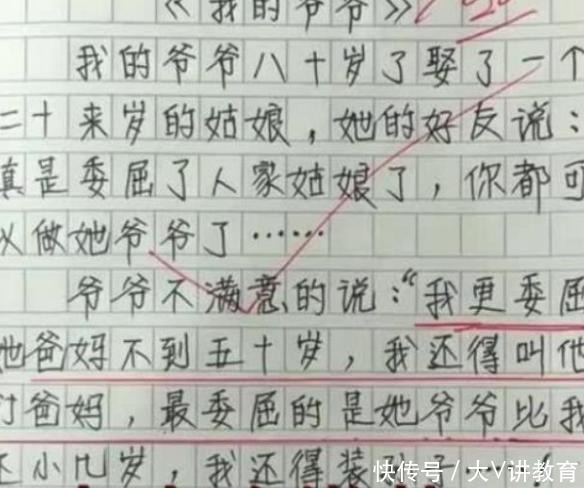 《我的爷爷》
我的爷爷八十岁了娶了一个
二十来岁的姑娘，她的好友说：
真是委屈了人家姑娘了，你都可
以做她爷爷了……
爷爷不满意的说：“我更委屈
她爸妈不到五十岁，我还得叫他
们爸妈，最委屈的是她爷爷比我
还小几岁，我还得装
快传号/大V讲教育